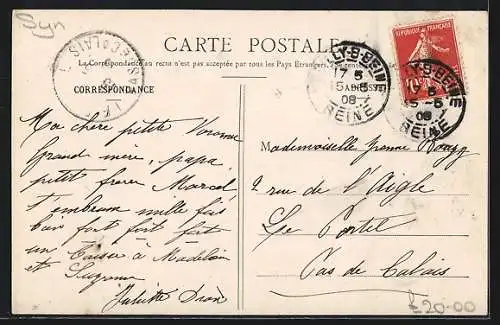 Syn
CARTE POSTALE
La Correspondance au recto n'est pas acceptée par tous les Pays Étrangers.
CORRESPONDANCE
ADRESSE
RÉPUBLIQUE FRANÇAISE
10
17 5
15 -5
08
SEINE
15 -5
08
SEINE
Ma chère petite Yvonne
Grand mère, papa
petit frère Marcel
t'embrasse mille fois
bien fort fort fort
un baiser à Madeleine
et Suzanne
Juliette
Mademoiselle Yvonne
2 rue de l'Aigle
Le Portel
Pas de Calais
£20-00